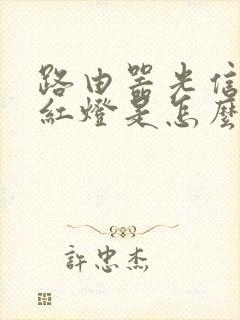 路由器光信
紅燈是怎麼
許忠杰